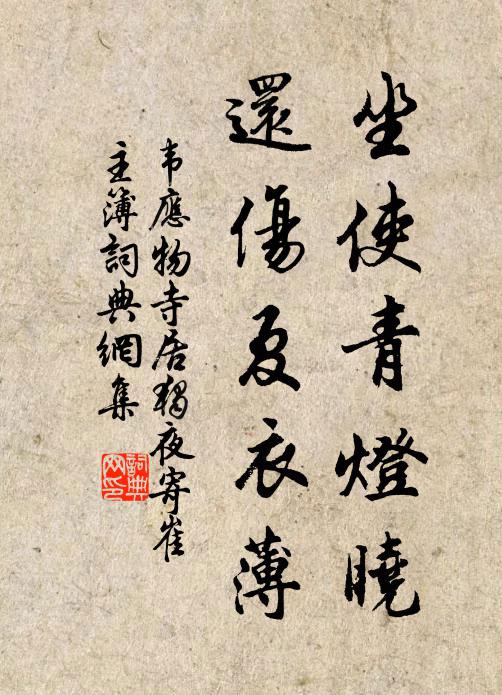 坐使青燈曉
還傷夏衣薄
韦應物寺居獨夜寄崔
主簿詞典網集
詞典
网印